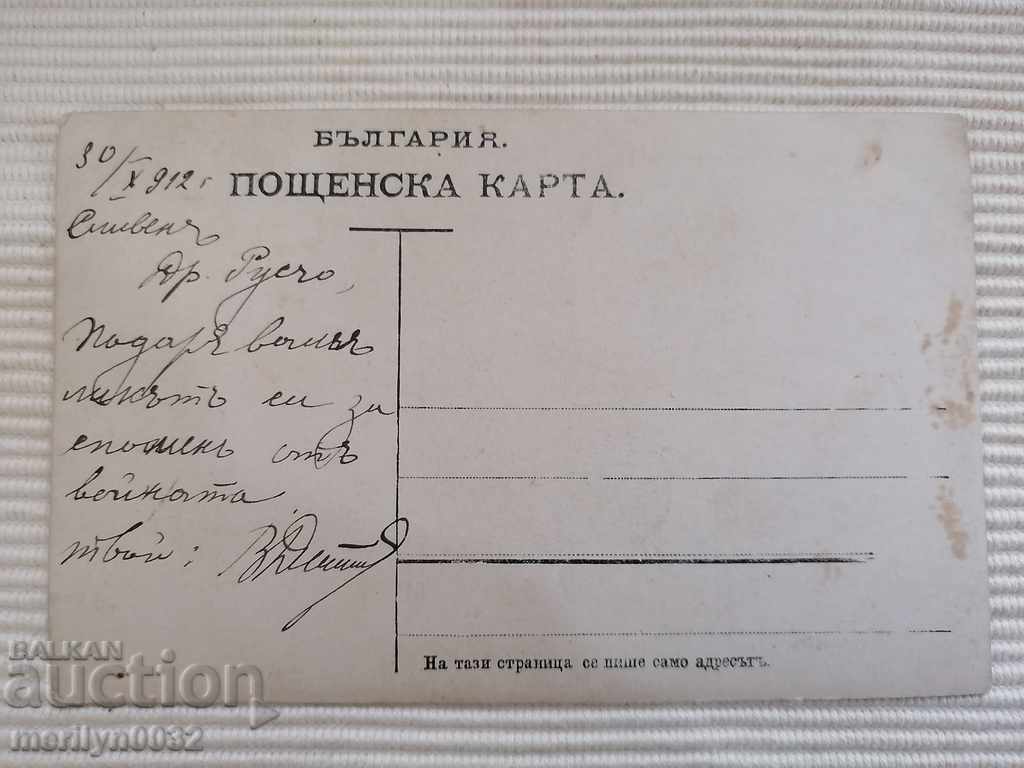 БЪЛГАРИЯ.
ПОЩЕНСКА КАРТА.
30/X 912 г
Сливенъ
Др. Русчо,
Подаръ вамъ
ликътъ си за
споменъ отъ
войната
твой:
На тази страница се пише само адресътъ.
BALKAN
auction
merilyn0032